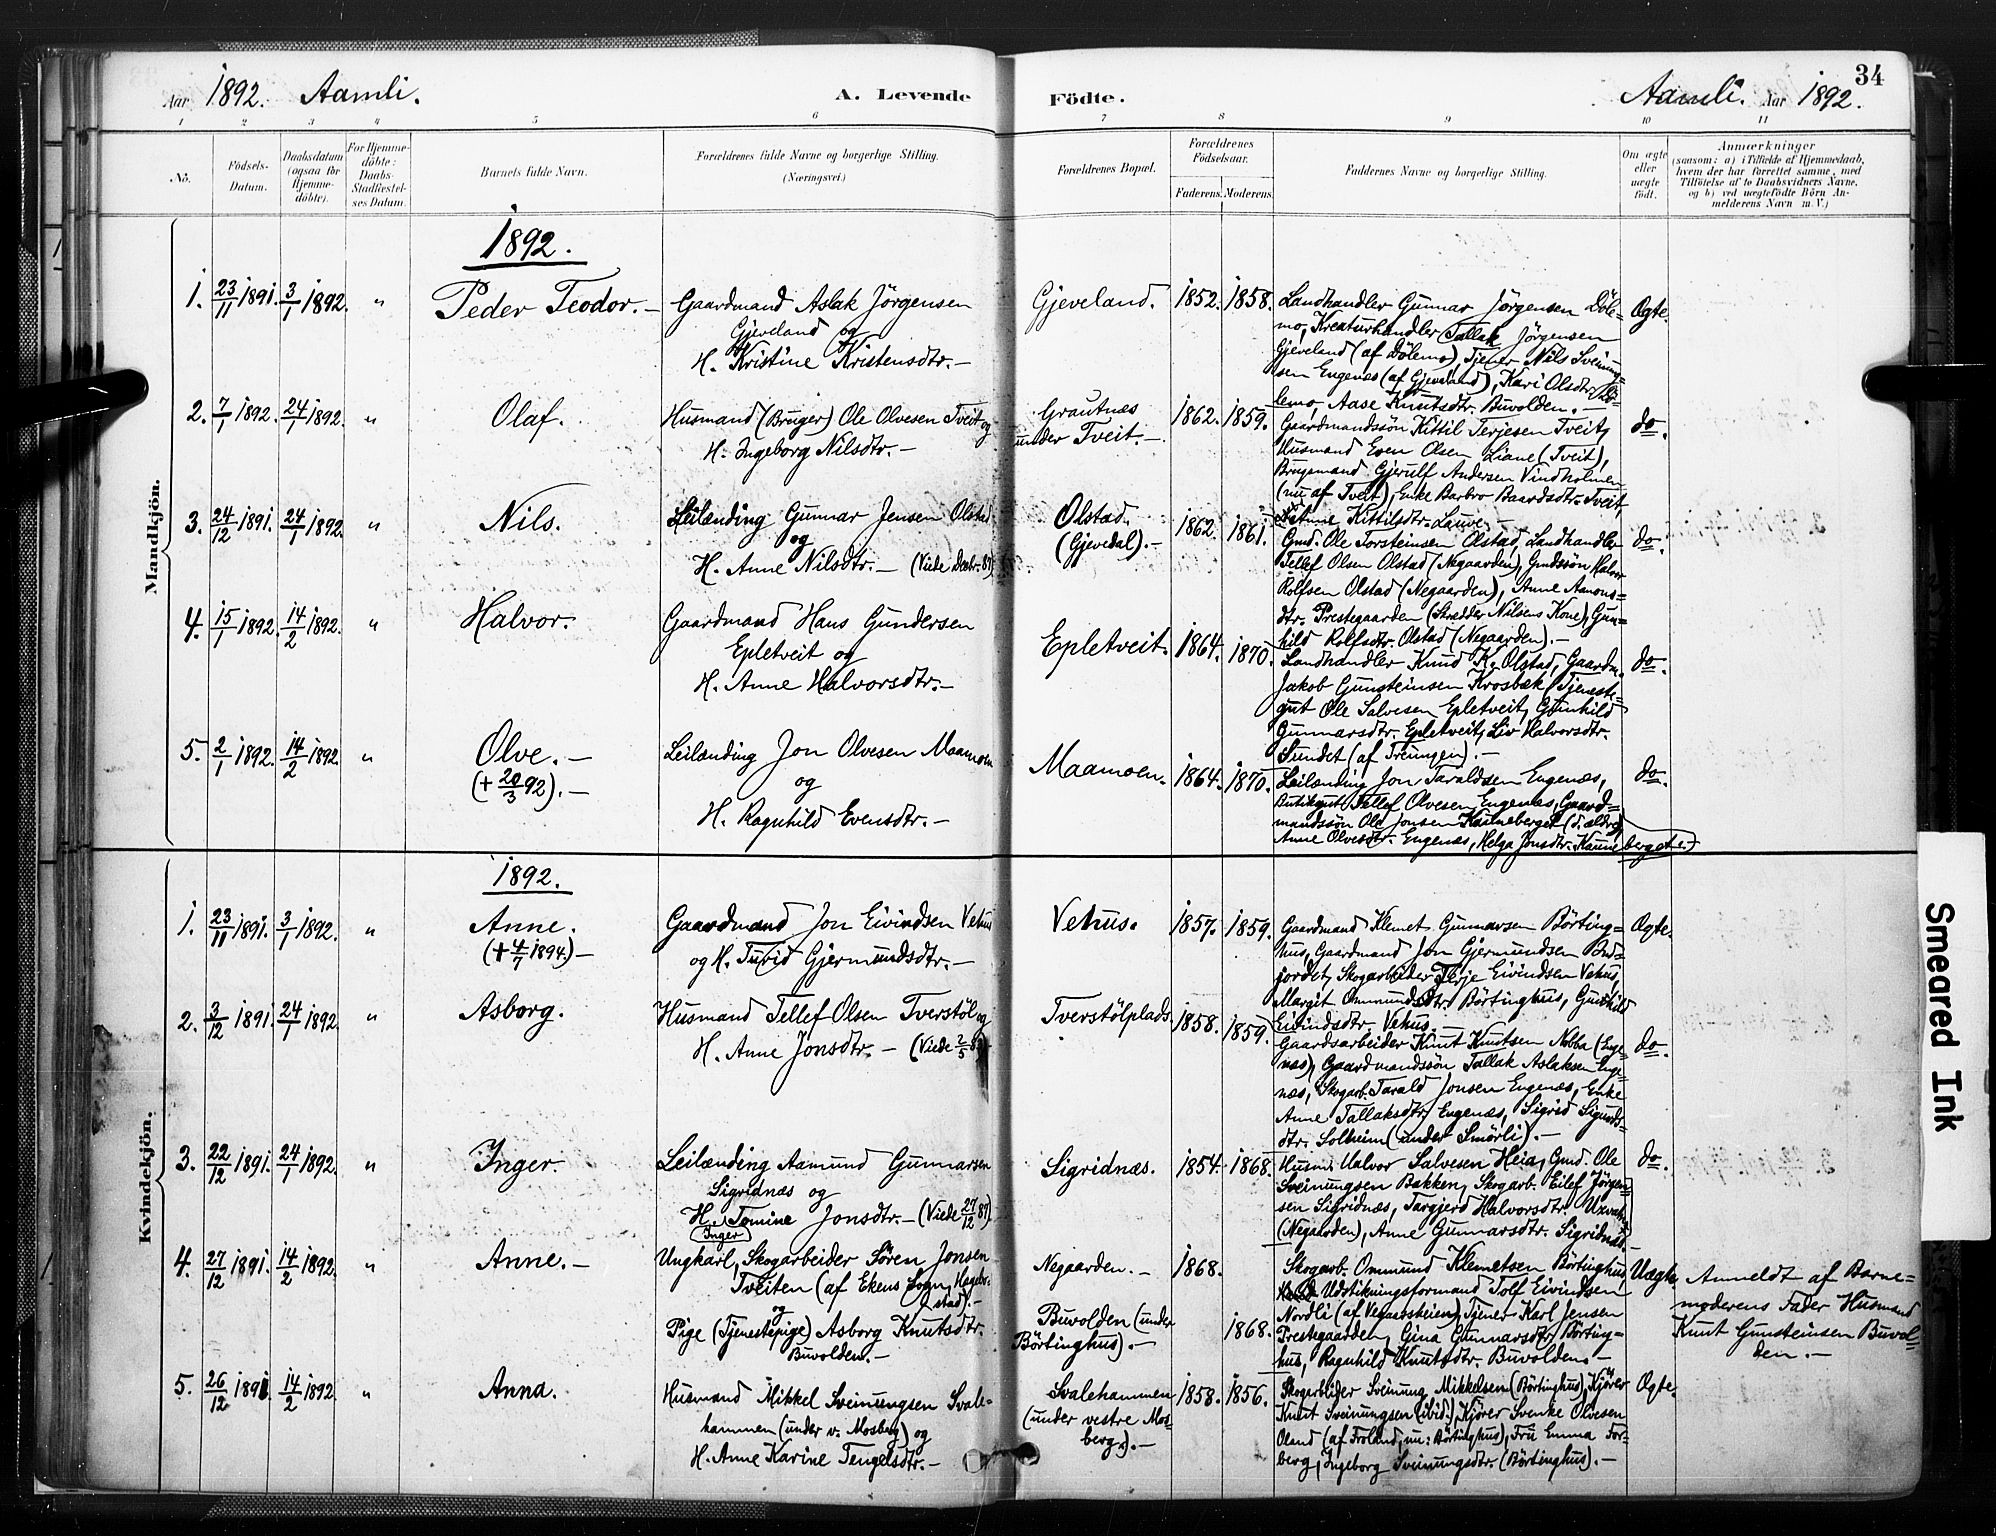 34
Aar 1892. Aamli. A. Levende Födte. Aamli. Aar 1892.
1 2 3 4 5 6 7 8 9 10 11
No.
Födsels-
Datum.
Daabsdatum
(ogsaa for
Hjemme-
döbte).
For Hjemme-
döbte:
Daabs-
Stadfæstel-
ses Datum.
Barnets fulde Navn.
Forældrenes fulde Navne og borgerlige Stilling.
(Næringsvei.)
Forældrenes Bopæl.
Forældrenes
Födselsaar.
Faderens. Moderens.
Faddernes Navne og borgerlige Stilling.
Om ægte
eller
uægte
födt.
Anmærkninger
(saasom: a) i Tilfælde af Hjemmedaab,
hvem der har forrettet samme, med
Tilföielse af to Daabsvidners Navne,
og b) ved uægtefödte Börn An-
melderens Navn m. V.)
Mandkjön.
1892.
1. 23/11 1891. 3/1 1892. " Peder Teodor. —
Gaardmand Aslak Jörgensen
Gjeveland og
H. Kristine Kristensdtr. —
Gjeveland. 1852. 1858.
Landhandler Gunnar Jörgensen Döle-
mo, Kreaturhandler Tallak Jörgensen
Gjeveland (af Dölemo), Tjener Nils Sveinung-
sen Engenæs (af Gjeveland), Kari Olsdtr. Dö-
lemo, Aase Knutsdtr. Buvolden. —
Ægte.
2. 7/1 1892. 24/1 1892. " Olaf.
Husmand (Bruger) Ole Olvesen Tveit og
H. Ingeborg Nilsdtr. —
Grautnes
under Tveit. — 1862. 1859.
Gaardmandssön Kittil Terjesen Tveit,
Husmand Even Olsen Liane (Tveit),
Brugsmand Gjerulf Andersen Vindholmen
(nu af Tveit), Enke Barbro Baardsdtr. Tveit,
Anne Kittilsdtr. Lauve. —
do.
3. 24/12 1891. 24/1 1892. " Nils.
Leilænding Gunnar Jensen Olstad
og
H. Anne Nilsdtr. — (Viede Dcbr. 87)
Olstad.
(Gjevedal). — 1862. 1861.
Gmd. Ole Torsteinsen Olstad, Landhandler
Tellef Olsen Olstad (Negaarden), Gmdssön Halvor
Rolfsen Olstad (Negaarden), Anne Aanons-
dtr. Prestegaarden (Skrædder Nilsens Kone), Gun-
hild Rolfsdtr. Olstad (Negaarden). —
do.
4. 15/1 1892. 14/2 1892. " Halvor.
Gaardmand Hans Gundersen
Epletveit og
H. Anne Halvorsdtr. —
Epletveit. 1864. 1870.
Landhandler Knud K. Olstad, Gaardm.
Jakob Gunsteinsen Krosbæk, Tjeneste-
gut Ole Salvesen Epletveit, Gunhild
Gunnarsdtr. Epletveit, Liv Halvorsdtr.
Sundet (af Treungen). —
do.
5. 2/1 1892. 14/2 1892. " Olve. —
(+ 20/3 92). —
Leilænding Jon Olvesen Maamoen
og
H. Ragnhild Evensdtr. —
Maamoen. 1864. 1870.
Leilænding Jon Taraldsen Engenæs,
Butikgut Tellef Olvesen Engenæs, Gaard-
mandssön Ole Jonsen Kauneberget (d. ældre),
Anne Olvesdtr. Engenæs, Helga Jonsdtr. Kaune
berget. —
do.
Kvindekjön.
1892.
1. 23/11 1891. 3/1 1892. " Anne.
(+ 4/7 1894.) —
Gaardmand Jon Eivindsen Vehus
og H. Turid Gjermundsdtr. —
Vehus. 1857. 1859.
Gaardmand Klemet Gunnarsen Börting-
hus, Gaardmand Jon Gjermundsen
jordet, Skogarbeider Terje Eivindsen Vehus,
Margit Ommundsdtr. Börtinghus, Gunhild
Eivindsdtr. Vehus.
Ægte.
2. 3/12 1891. 24/1 1892. " Asborg.
Husmand Tellef Olsen Tverstöl og
H. Anne Jonsdtr. — (Viede 2/5
Tverstölplads. 1858. 1859.
Gaardsarbeider Knut Knutsen Nobba (Enge-
næs), Gaardmandssön Tallak Aslaksen Enge-
næs, Skogarb. Tarald Jonsen Engenæs, Enke
Anne Tallaksdtr. Engenæs, Sigrid Sigurds-
dtr. Solheim (under Smörli). —
do.
3. 22/12 1891. 24/1 1892. " Inger.
Leilænding Aamund Gunnarsen
Sigridnæs og
H. Tomine Jonsdtr. — (Viede 27/12 87)
(Inger)
Sigridnæs. 1854. 1868.
Husm. Halvor Salvesen Heia, Gmd. Ole
Sveinungsen Bakken, Skogarb. Eilef Jörgen-
sen Sigridnæs, Targjerd Halvorsdtr. Uxvatn
(Negaarden), Anne Gunnarsdtr. Sigridnæs.
do.
4. 27/12 1891. 14/2 1892. " Anne. —
Ungkarl, Skogarbeider Sören Jonsen
Tveiten (af Ekens Sogn, Hægebo-
stad). —
og
Pige (Tjenestepige) Asborg Knutsdtr.
Buvolden. —
Negaarden. — 1868.
Buvolden (under
Börtinghus). — 1868.
Skogarb. Ommund Klemetsen Börtinghus,
Udstikningsformand Tolf Eivindsen
Nordli (af Vegaarsheien), Tjener Karl Jensen
Prestegaarden, Gina Gunnarsdtr. Börting-
hus, Ragnhild Knutsdtr. Buvolden. —
Uægte.
Anmeldt af Barne-
moderens Fader Husmand
Knut Gunsteinsen Buvol-
den. —
5. 26/12 1891. 14/2 1892. " Anna.
Husmand Mikkel Sveinungsen Svale-
hammen (under v. Mosberg) og
H. Anne Karine Tengelsdtr. —
Svalehammen
(under vestre Mos-
berg.). — 1858. 1856.
Skogarbeider Sveinung Mikkelsen (Börtinghus), Kjörer
Knut Sveinungsen (ibid.), Kjörer Svenke Olvesen
Oland (af Froland, nu: Börtinghus), Fru Emma Tor-
berg, Ingeborg Sveinungsdtr. (Börtinghus). —
Ægte.
Smeared Ink